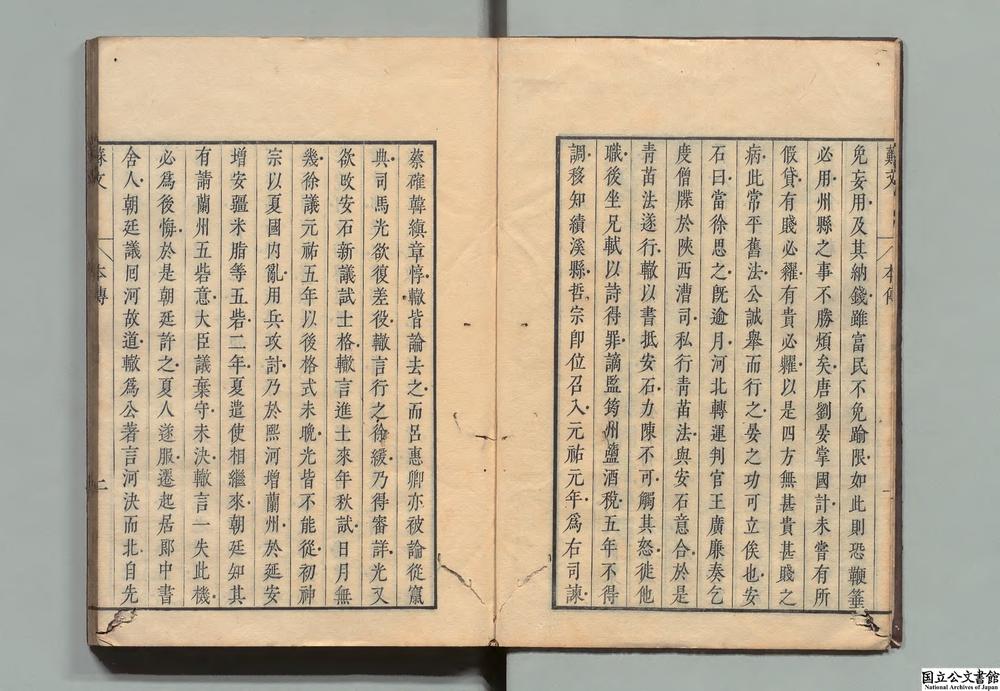 免妄用及其納錢雖富民不免踰限如此則恐鞭箠
必用州縣之事不勝煩矣唐劉晏掌國計未嘗有所
假貸有賤必糴有貴必糶以是四方無甚貴甚賤之
病此常平舊法公誠舉而行之晏之功可立俟也安
石曰當徐思之旣逾月河北轉運判官王廣廉奏乞
度僧牒於陝西漕司私行靑苗法與安石意合於是
靑苗法遂行轍以書抵安石力陳不可觸其怒徙他
職後坐兄軾以詩得罪謫監筠州鹽酒稅五年不得
調移知績溪縣哲宗卽位召入元祐元年爲右司諫
蔡確韓縝章惇轍皆論去之而呂惠卿亦被論從竄
典司馬光欲復差役轍言行之徐緩乃得審詳光又
欲攺安石新議試士格轍言進士來年秋試日月無
幾徐議元祐五年以後格式未晩光皆不能從初神
宗以夏國內亂用兵攻討乃於熙河增蘭州於延安
增安疆米脂等五砦二年夏遣使相繼來朝廷知其
有請蘭州五砦意大臣議棄守未決轍言一失此機
必爲後悔於是朝廷許之夏人遂服遷起居郞中書
舍人朝廷議囘河故道轍爲公著言河決而北自先
本傳
二
国立公文書館
National Archives of Japan